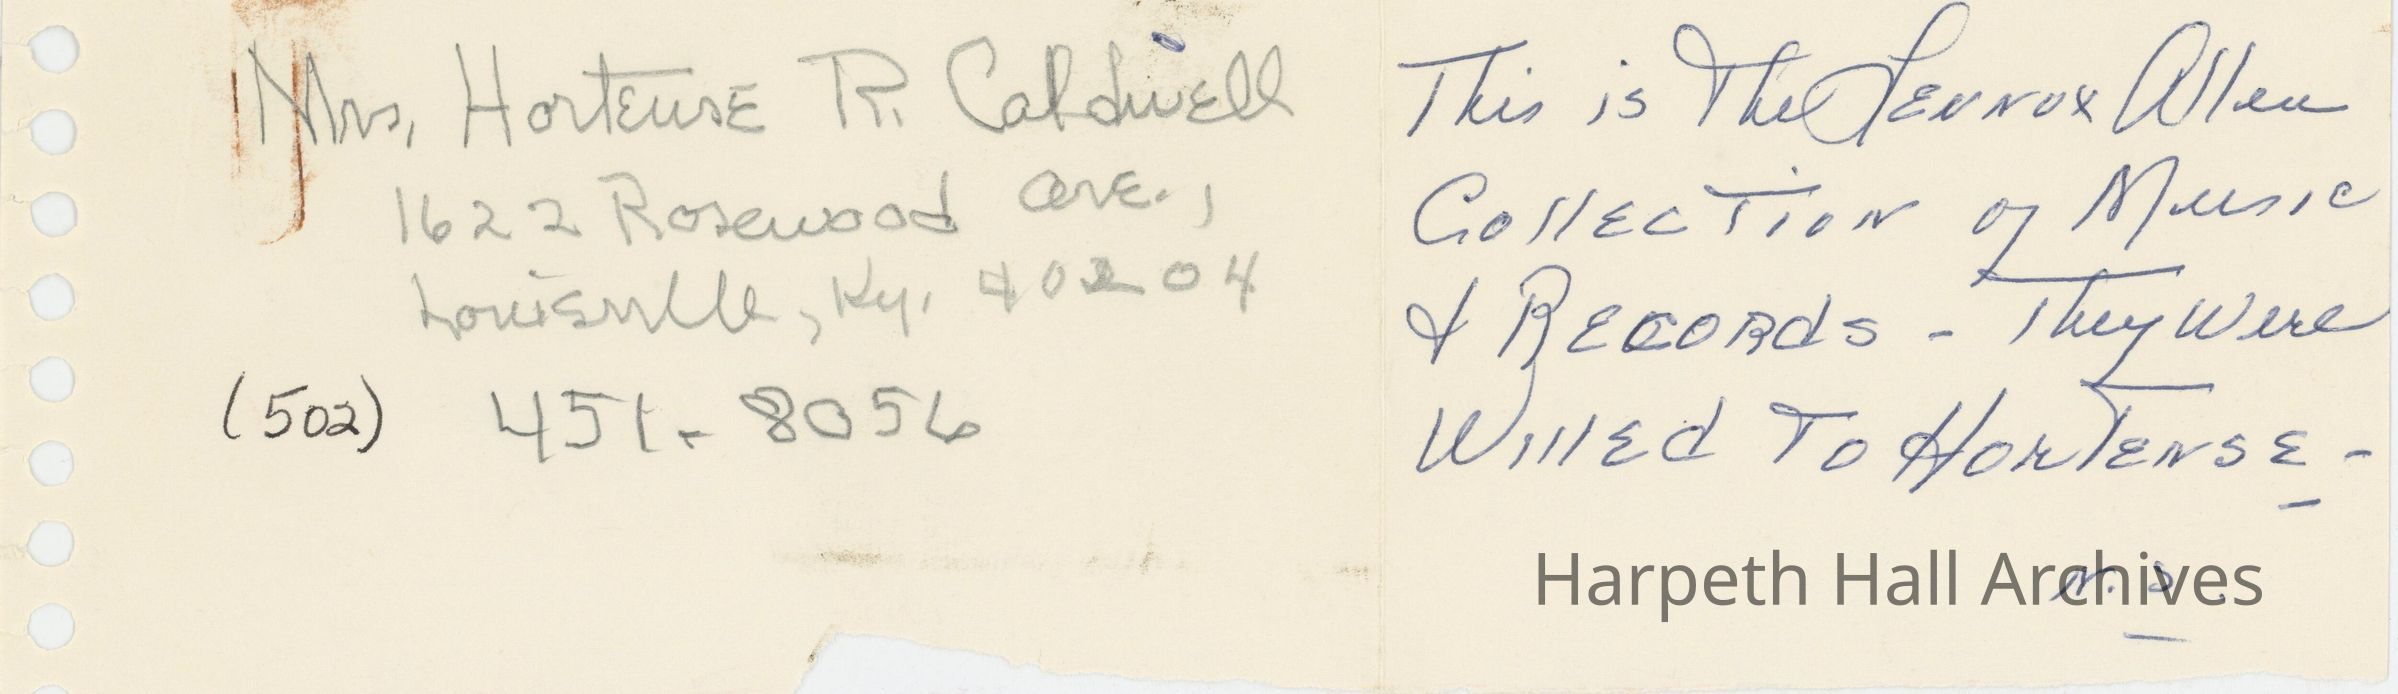 Mrs. Hortense R. Caldwell
1622 Rosewood Ave.,
Louisville, Ky. 40204
(502) 451-8056
This is The Lennox Allen
Collection of Music
& Records - They Were
Willed To Hortense -
N. S.
Harpeth Hall Archives